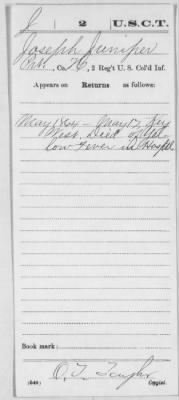 J 2 U.S.C.T.
Joseph Juniper
Pvt., Co. K, 2 Reg't U. S. Col'd Inf.
Appears on Returns as follows:
May 1864 - May 17, Key
West. Died of Yel-
low Fever in Hospl.
Book mark:
(546) O. T. Taylor Copyist.